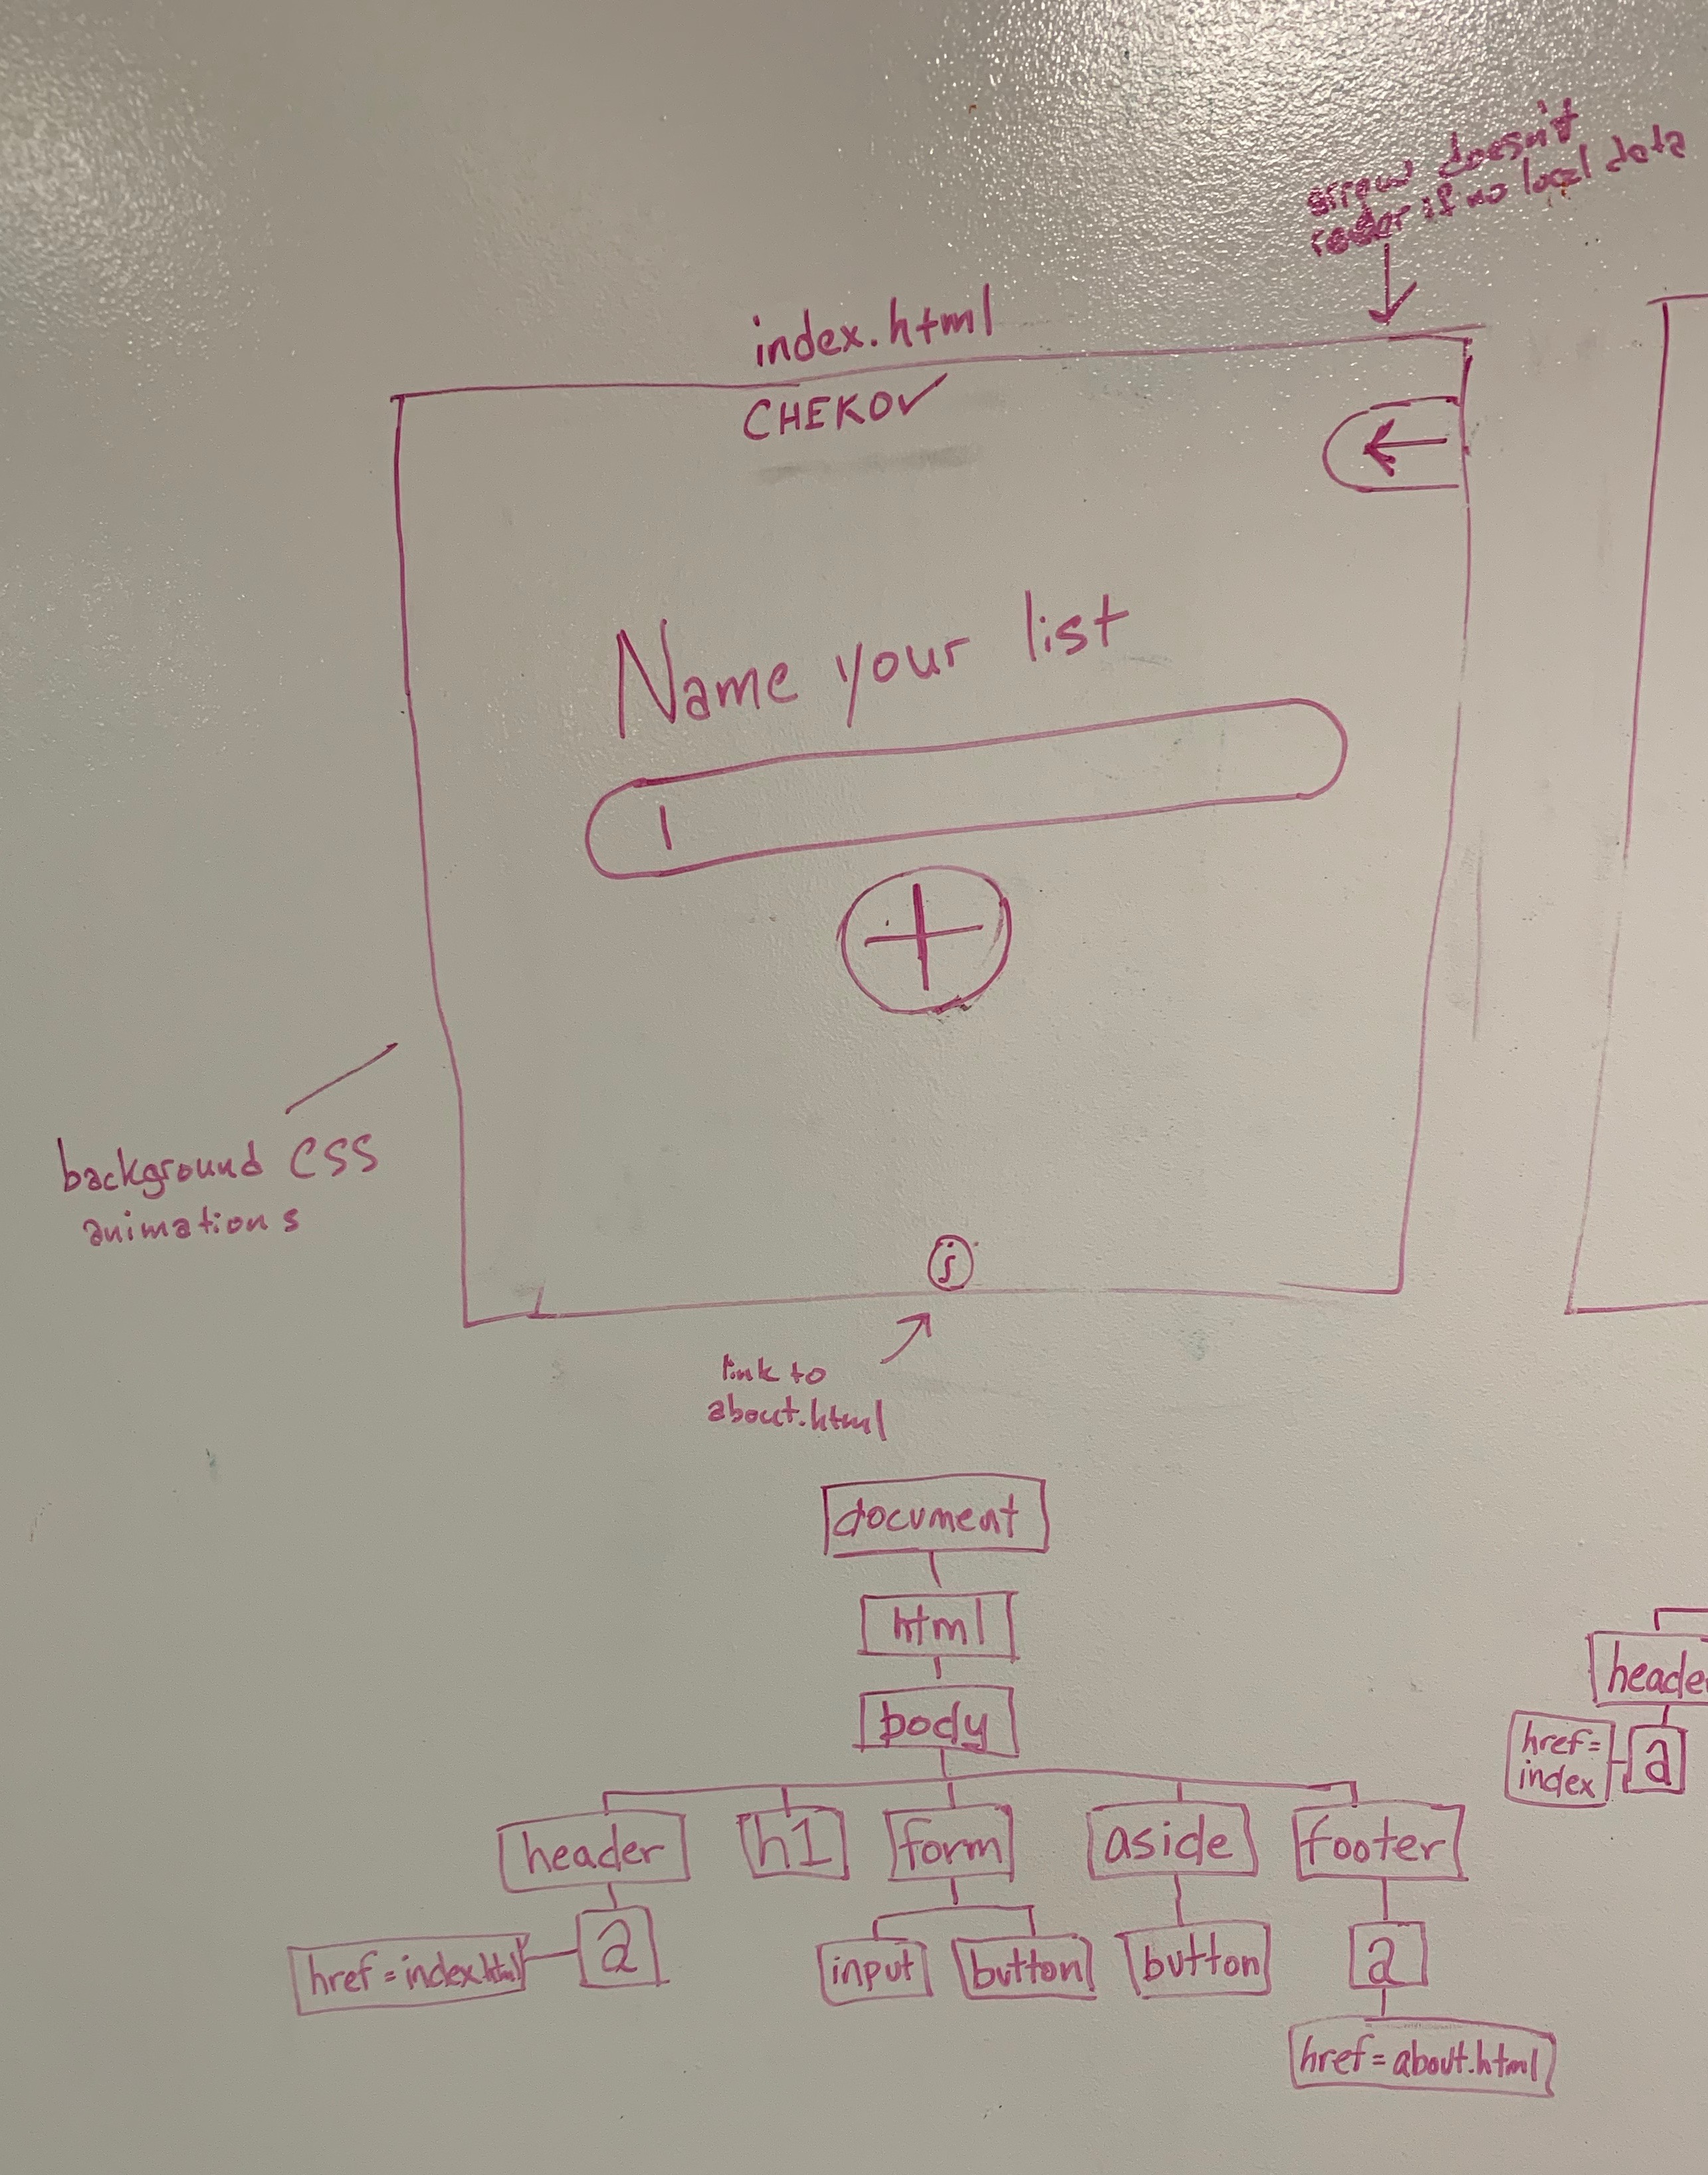 arrow doesn't
render if no local data
index.html
CHEKOV
Name your list
background CSS
animations
i
link to
about.html
document
html
body
header
h1
form
aside
footer
a
href=index.html
input
button
button
a
href=about.html
heade
href=
index
a